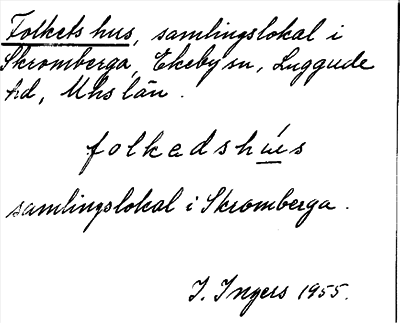 Folkets hus, samlingslokal i
Skromberga, Ekeby sn, Luggude
hd, Mhs län.
folkedshús
samlingslokal i Skromberga.
I. Ingers 1955.